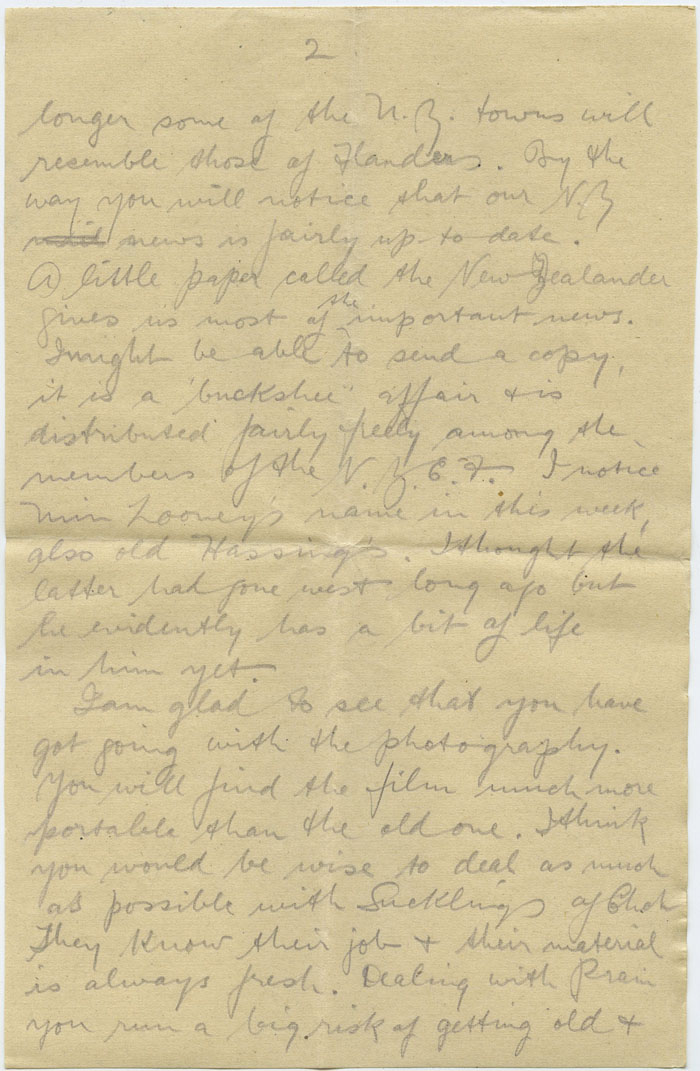 2
longer some of the N.Z. towns will
resemble those of Flanders. By the
way you will notice that our N.Z
news is fairly up-to-date.
A little paper called the New Zealander
gives us most of the important news.
I might be able to send a copy,
it is a "buckshee" affair & is
distributed fairly freely among the
members of the N.Z.E.F. I notice
Looney's name in this week,
also old Hassing's. I thought the
latter had gone west long ago but
he evidently has a bit of life
in him yet.
I am glad to see that you have
got going with the photography.
You will find the film much more
portable than the old one. I think
you would be wise to deal as much
as possible with Sucklings of Chch
They know their job & their material
is always fresh. Dealing with
you run a big risk of getting old &